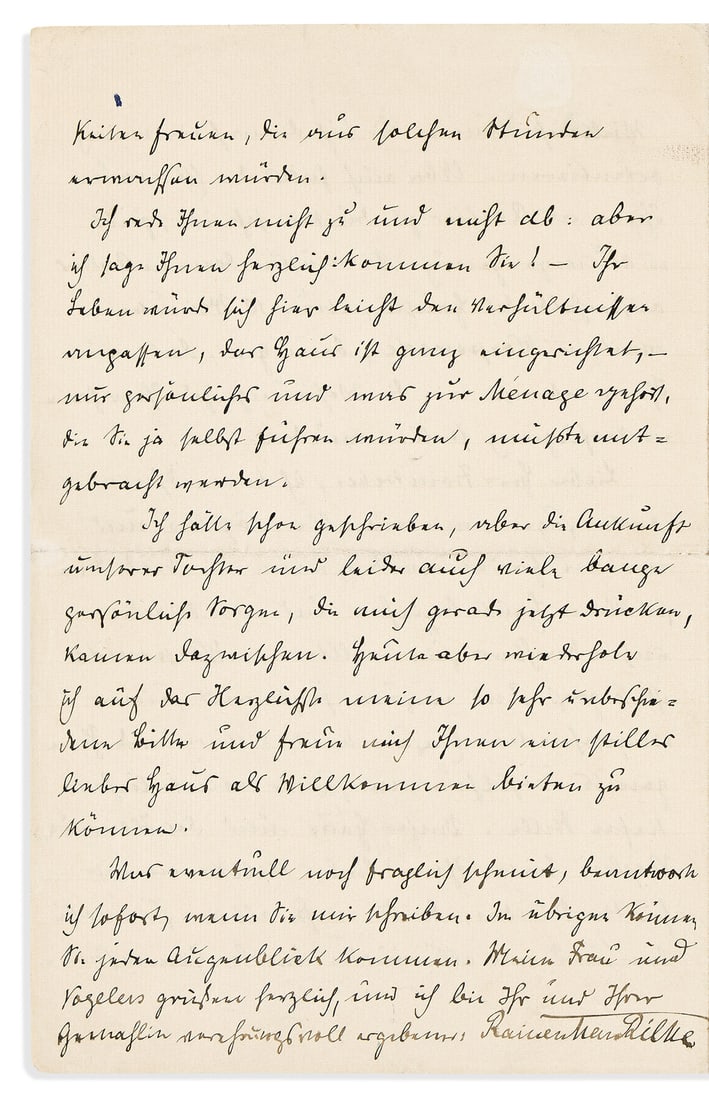 keiten freuen, die aus solchen Stunden
erwachsen würden.
Ich rede Ihnen nicht zu und nicht ab: aber
ich sage Ihnen herzlich: kommen Sie! – Ihr
Leben würde sich hier leicht den Verhältnissen
anpassen, das Haus ist ganz eingerichtet, –
nur persönliches und was zur Ménage gehört,
die Sie ja selbst führen würden, müßte mit=
gebracht werden.
Ich hätte schon geschrieben, aber die Ankunft
unserer Tochter und leider auch viele bange
persönliche Sorgen, die mich gerade jetzt drücken,
kamen dazwischen. Heute aber wiederhole
ich auf das Herzlichste meine so sehr unbeschie=
dene Bitte und freue mich Ihnen ein stilles
liebes Haus als Willkommen bieten zu
können.
Was eventuell noch fraglich scheint, beantworte
ich sofort, wenn Sie mir schreiben. Im übrigen können
Sie jeden Augenblick kommen. Meine Frau und
Vogelers grüßen herzlich, und ich bin Ihr und Ihrer
Gemahlin verehrungsvoll ergebener: Rainer Maria Rilke